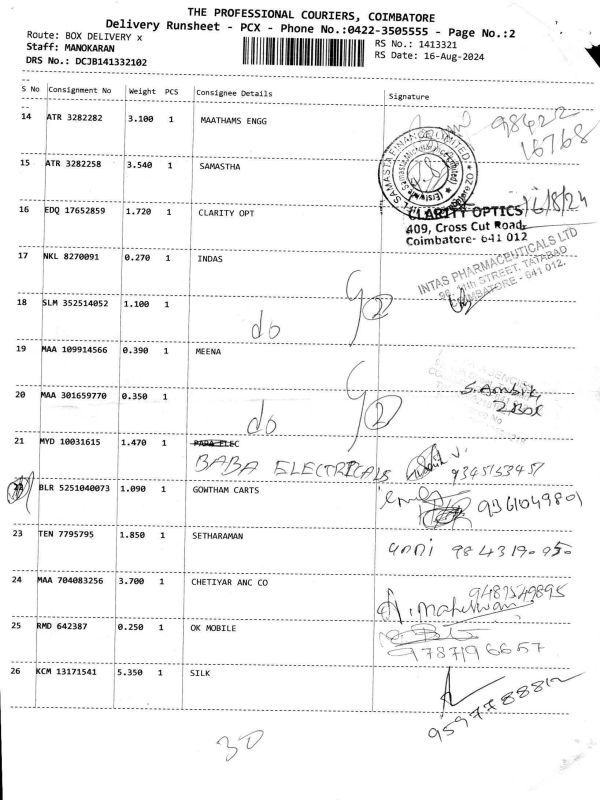 THE PROFESSIONAL COURIERS, COIMBATORE
Delivery Runsheet - PCX - Phone No.:0422-3505555 - Page No.:2
Route: BOX DELIVERY x
RS No.: 1413321
Staff: MANOKARAN
RS Date: 16-Aug-2024
DRS No.: DCJB141332102
S No Consignment No Weight PCS Consignee Details Signature
14 ATR 3282282 3.100 1 MAATHAMS ENGG
98422
16768
15 ATR 3282258 3.540 1 SAMASTHA
SAMASTA FINANCE LIMITED
16 EDQ 17652859 1.720 1 CLARITY OPT
CLARITY OPTICS 16/8/24
409, Cross Cut Road,
Coimbatore- 641 012
17 NKL 8270091 0.270 1 INDAS
INTAS PHARMACEUTICALS LTD
11th STREET, TATABAD
COIMBATORE - 641 012.
18 SLM 352514052 1.100 1
do 2
19 MAA 109914566 0.390 1 MEENA
20 MAA 301659770 0.350 1
do 2
21 MYD 10031615 1.470 1 PAPA ELEC
BABA ELECTRICALS 9345153457
22 BLR 5251040073 1.090 1 GOWTHAM CARTS
9361049801
23 TEN 7795795 1.850 1 SETHARAMAN
984319-050
24 MAA 704083256 3.700 1 CHETIYAR ANC CO
9487549895
25 RMD 642387 0.250 1 OK MOBILE
9787196657
26 KCM 13171541 5.350 1 SILK
9597788812
30